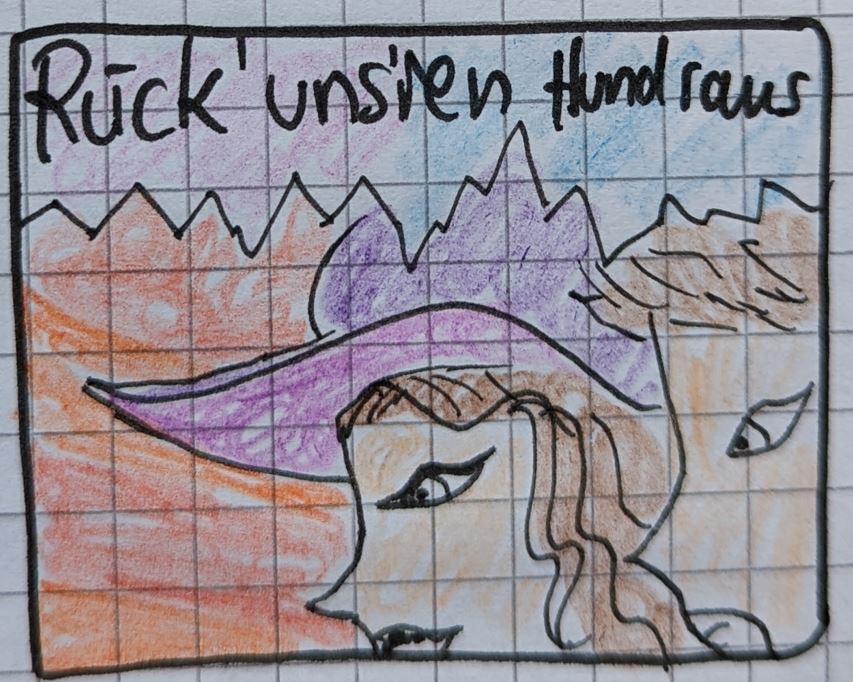 Rück' unsren Hund raus